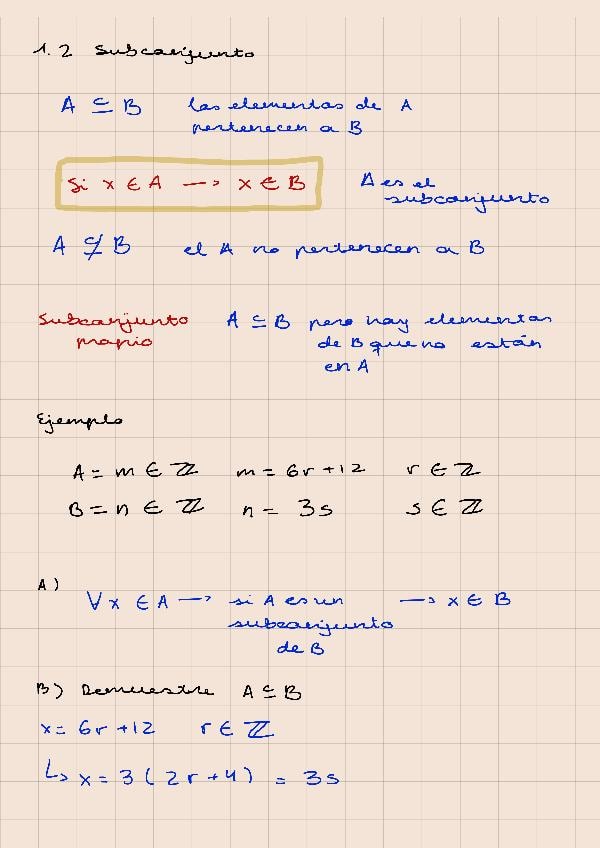 1.2 Subconjunto
A ⊆ B los elementos de A
pertenecen a B
Si x ∈ A → x ∈ B A es el
subconjunto
A ⊈ B el A no pertenecen a B
Subconjunto A ⊆ B pero hay elementos
propio de B que no están
en A
Ejemplo
A = m ∈ ℤ m = 6r + 12 r ∈ ℤ
B = n ∈ ℤ n = 3s s ∈ ℤ
A)
∀x ∈ A → si A es un → x ∈ B
subconjunto
de B
B) Demuestre A ⊆ B
x = 6r + 12 r ∈ ℤ
↳ x = 3 ( 2r + 4 ) = 3s